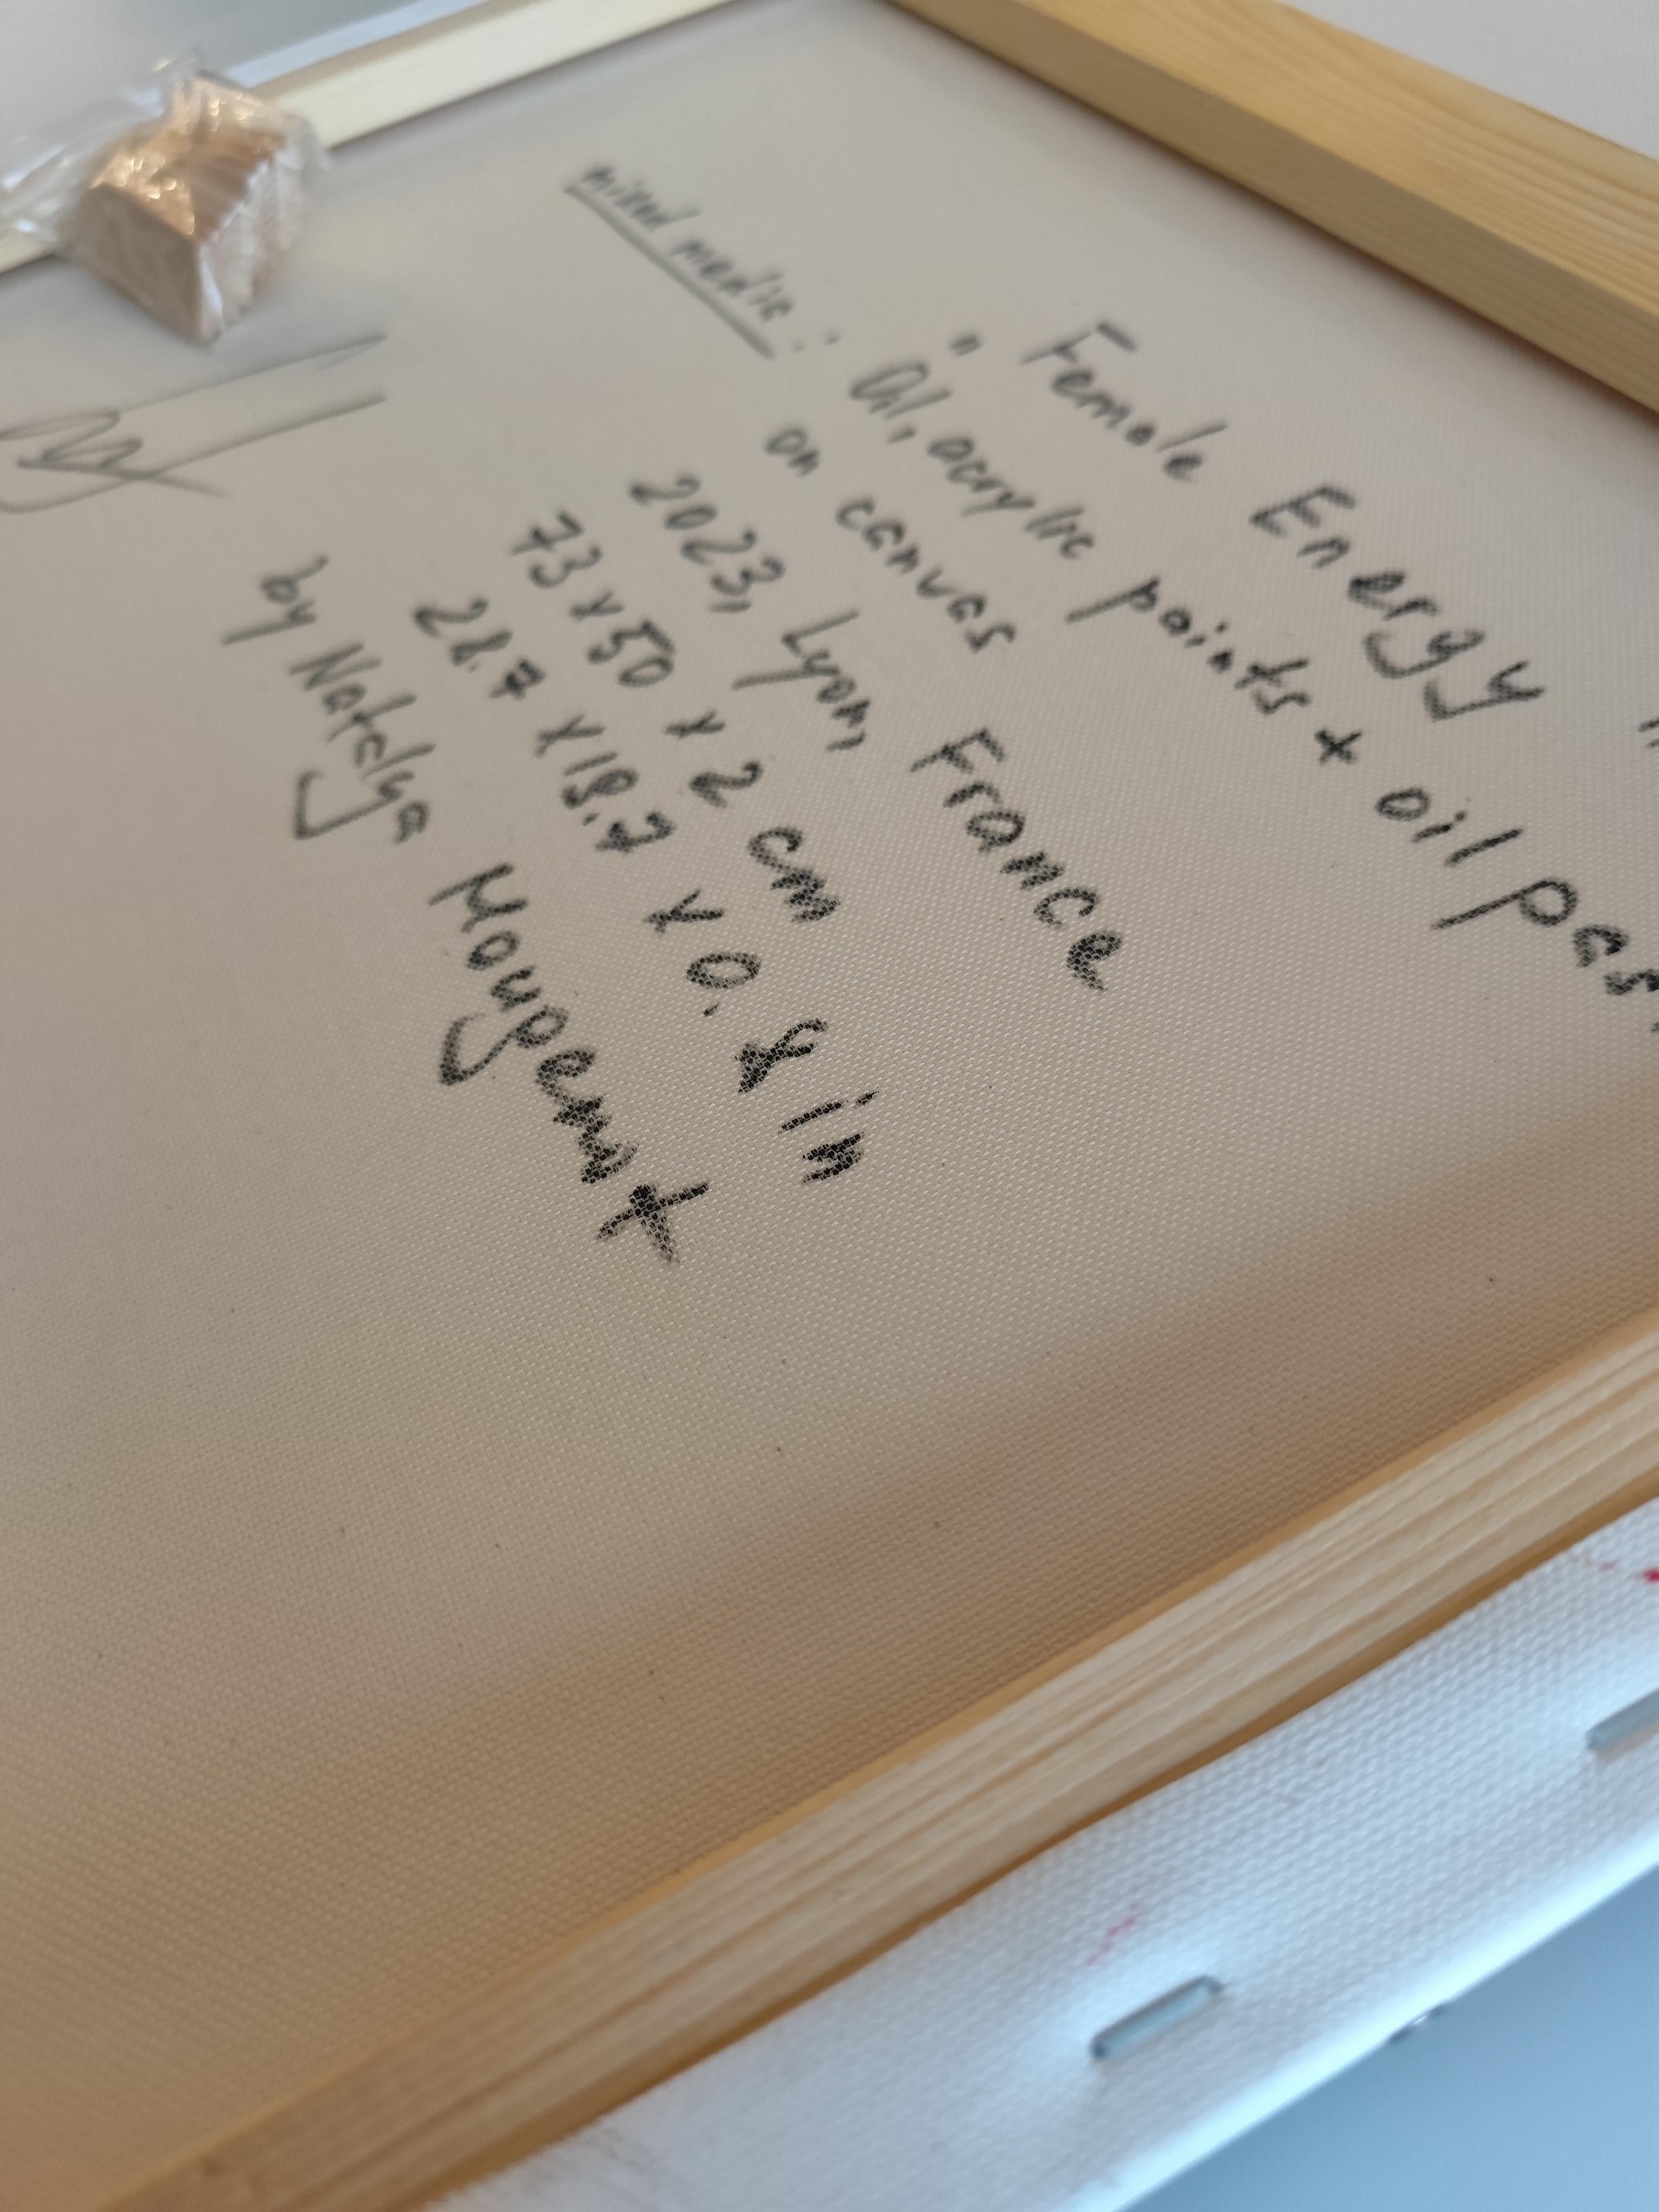 "Female Energy"
mixed media: Oil, acrylic paints + oil pas
on canvas
2023, Lyon, France
73 x 50 x 2 cm
28.7 x 19.7 x 0.8 in
by Natalya Mougenot